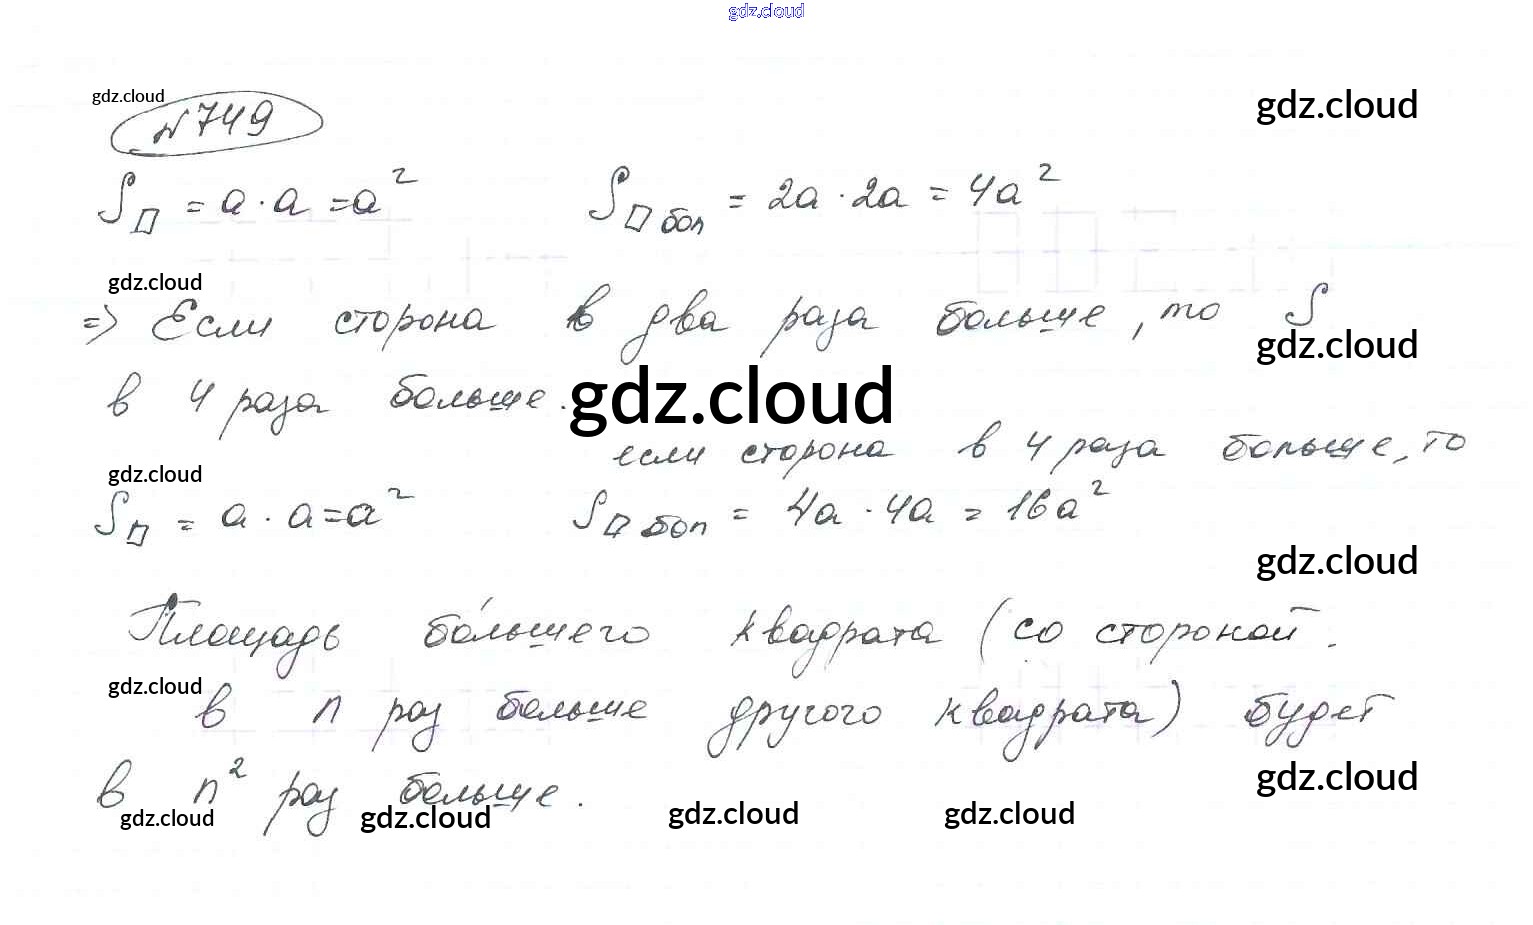 gdz.cloud
gdz.cloud
№749
gdz.cloud
S▱ = a · a = a² S▱ бол = 2a · 2a = 4a²
gdz.cloud
=> Если сторона в два раза больше, то S
gdz.cloud
в 4 раза больше.
gdz.cloud
если сторона в 4 раза больше, то
gdz.cloud
S▱ = a · a = a² S▱ бол = 4a · 4a = 16a²
gdz.cloud
Площадь бо́льшего квадрата (со стороной
gdz.cloud
в n раз больше другого квадрата) будет
gdz.cloud
в n² раз больше.
gdz.cloud gdz.cloud gdz.cloud gdz.cloud